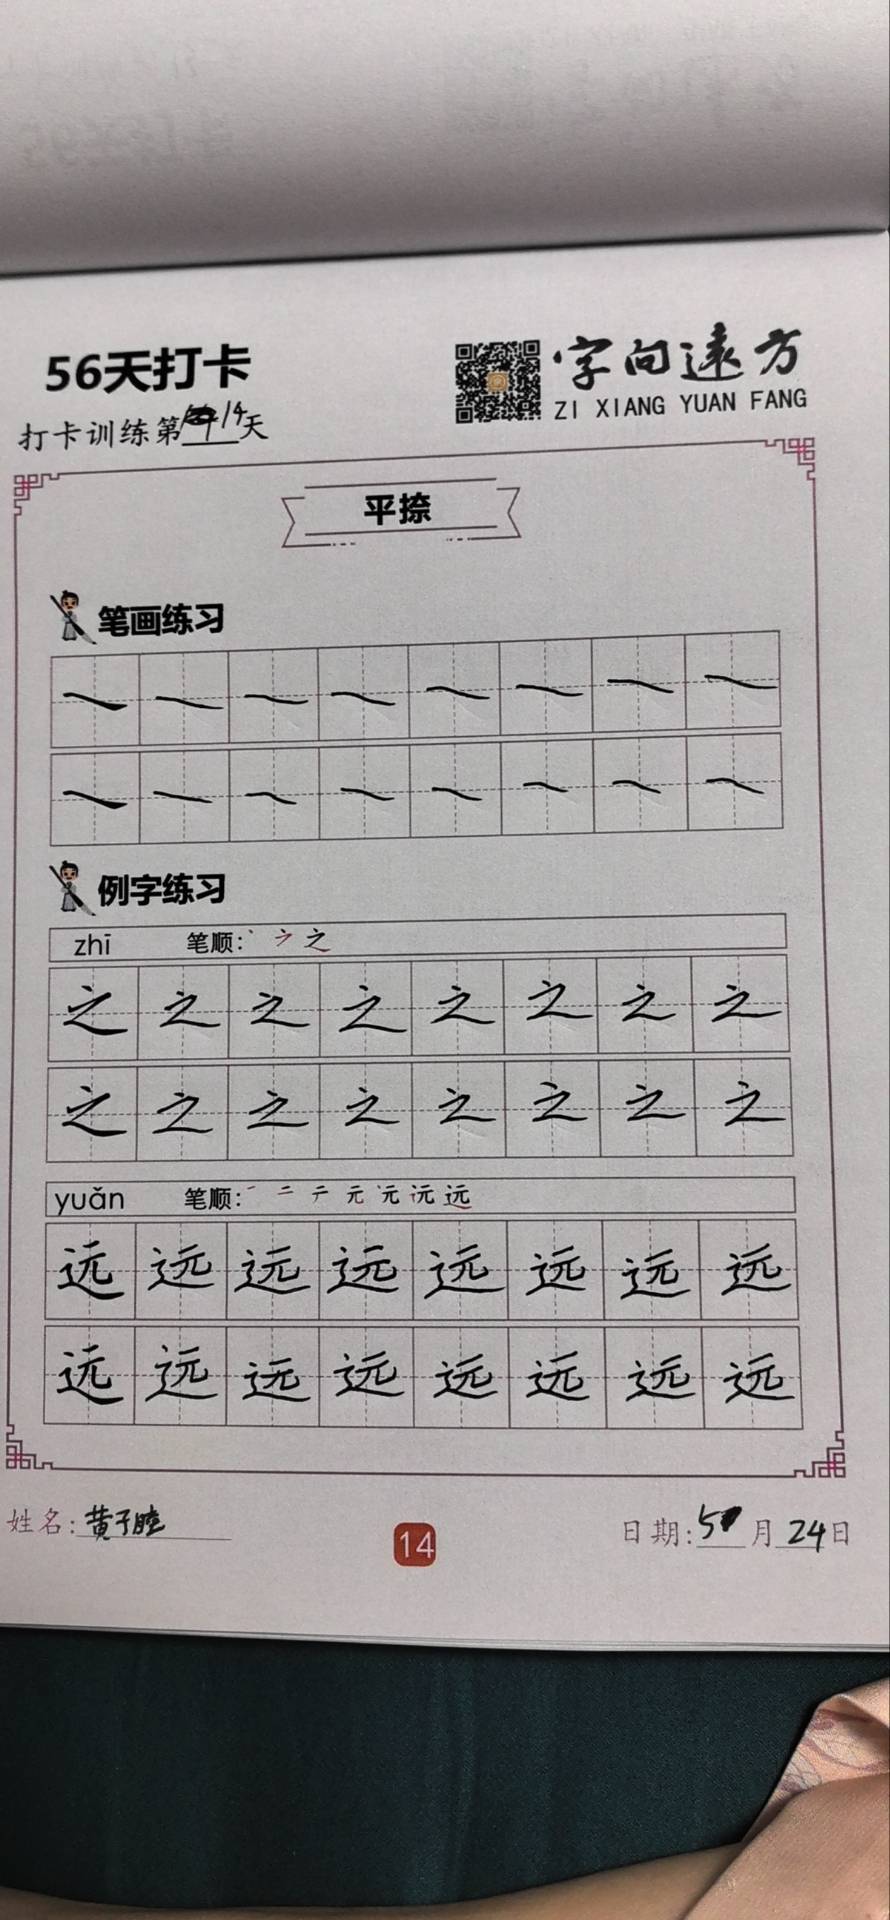 56天打卡
字向遠方
ZI XIANG YUAN FANG
打卡训练第14天
平捺
笔画练习
例字练习
zhī 笔顺: 之
之 之 之 之 之 之 之 之
之 之 之 之 之 之 之 之
yuǎn 笔顺: 一 二 テ 元 元 远 远
远 远 远 远 远 远 远 远
远 远 远 远 远 远 远 远
姓名: 黄子睦
14
日期: 5月24日